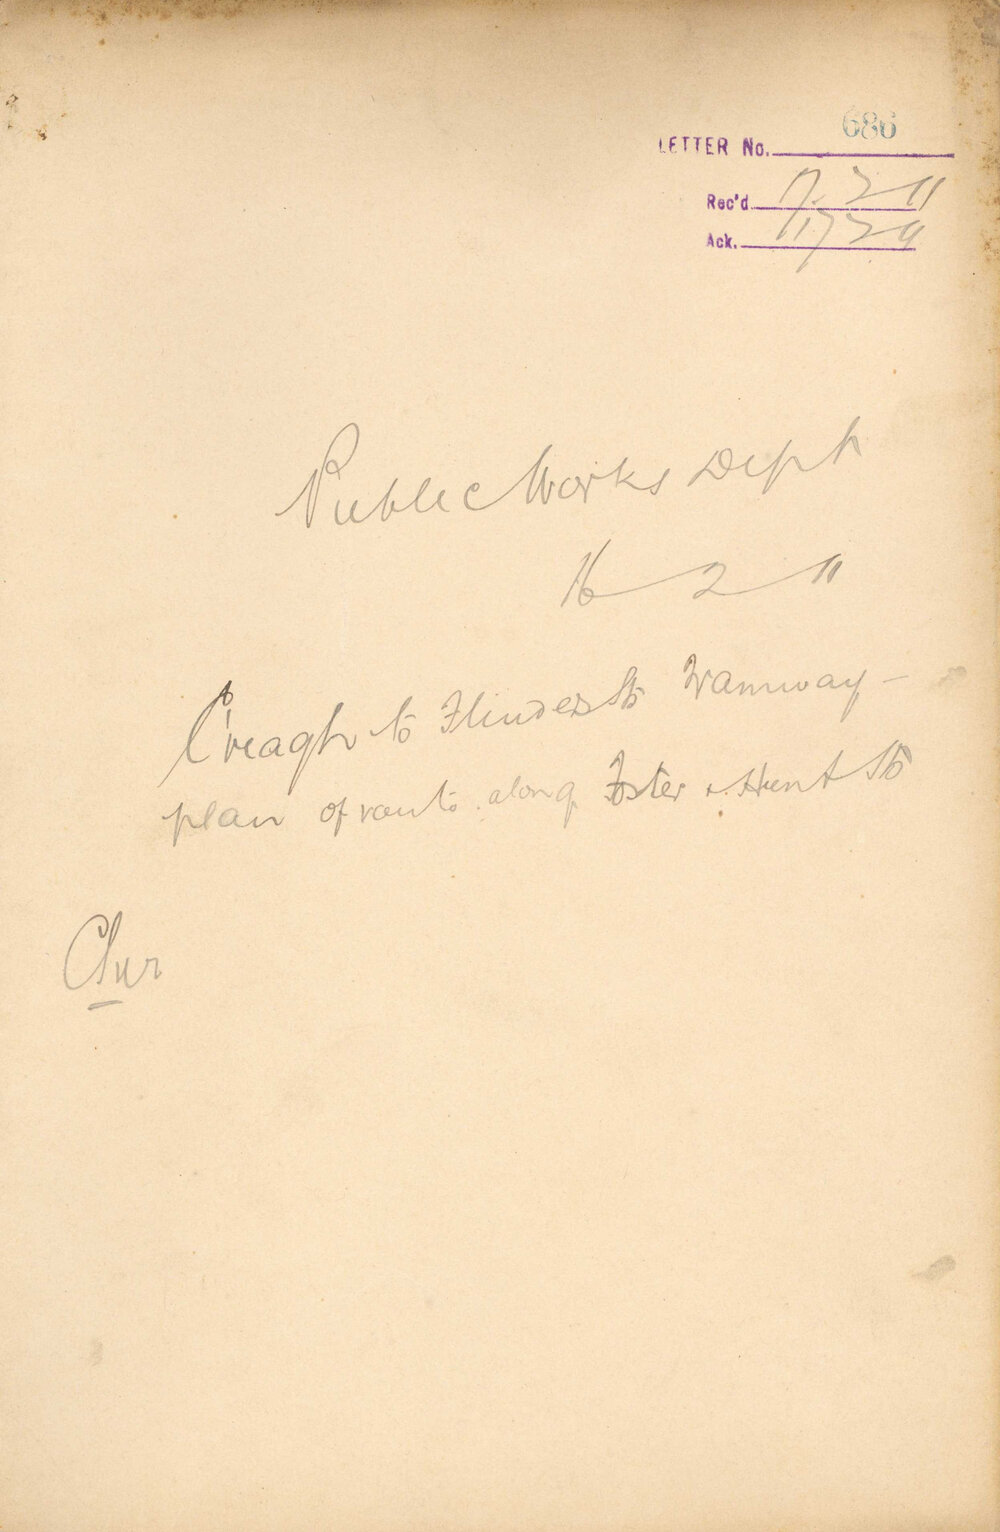 LETTER No. 686
Rec'd 17. 2 11
Ack. 17 2 11
Public Works Dept
16 2 11
Creagh to Flinders Sts Tramway -
plan of route along Foster & Hunt Sts